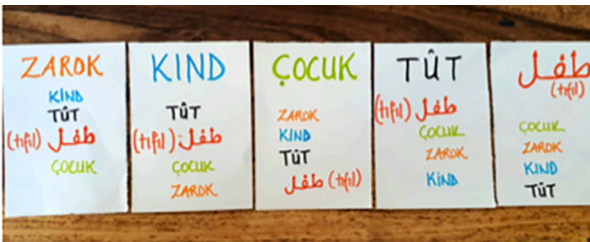 ZAROK
KİND
TÛT
(tıfıl) طفل
ÇOCUK
KIND
TÛT
(tıfıl) طفل
ÇOCUK
ZAROK
ÇOCUK
ZAROK
KIND
TÛT
طفل (tıfıl)
TÛT
(tıfıl) طفل
ÇOCUK
ZAROK
KİND
طفل
(tıfıl)
ÇOCUK
ZAROK
KIND
TÛT